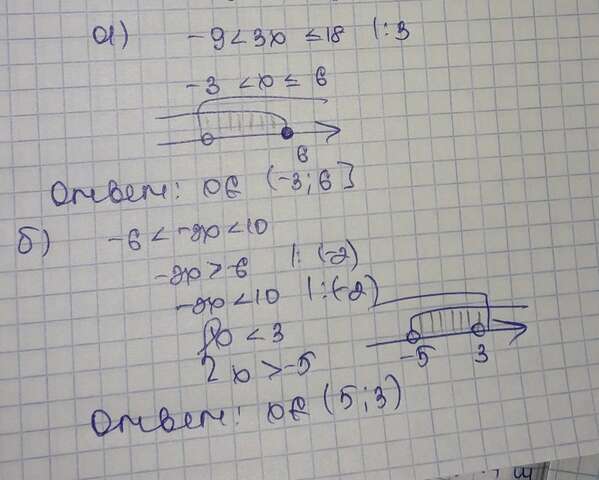 а) -9 < 3x ≤ 18 |: 3
-3 < x ≤ 6
6
Ответ: x∈ (-3; 6]
б) -6 < -2x < 10
-2x > -6 |: (-2)
-2x < 10 |: (-2)
{x < 3
x > -5
-5 3
Ответ: x∈ (5; 3)